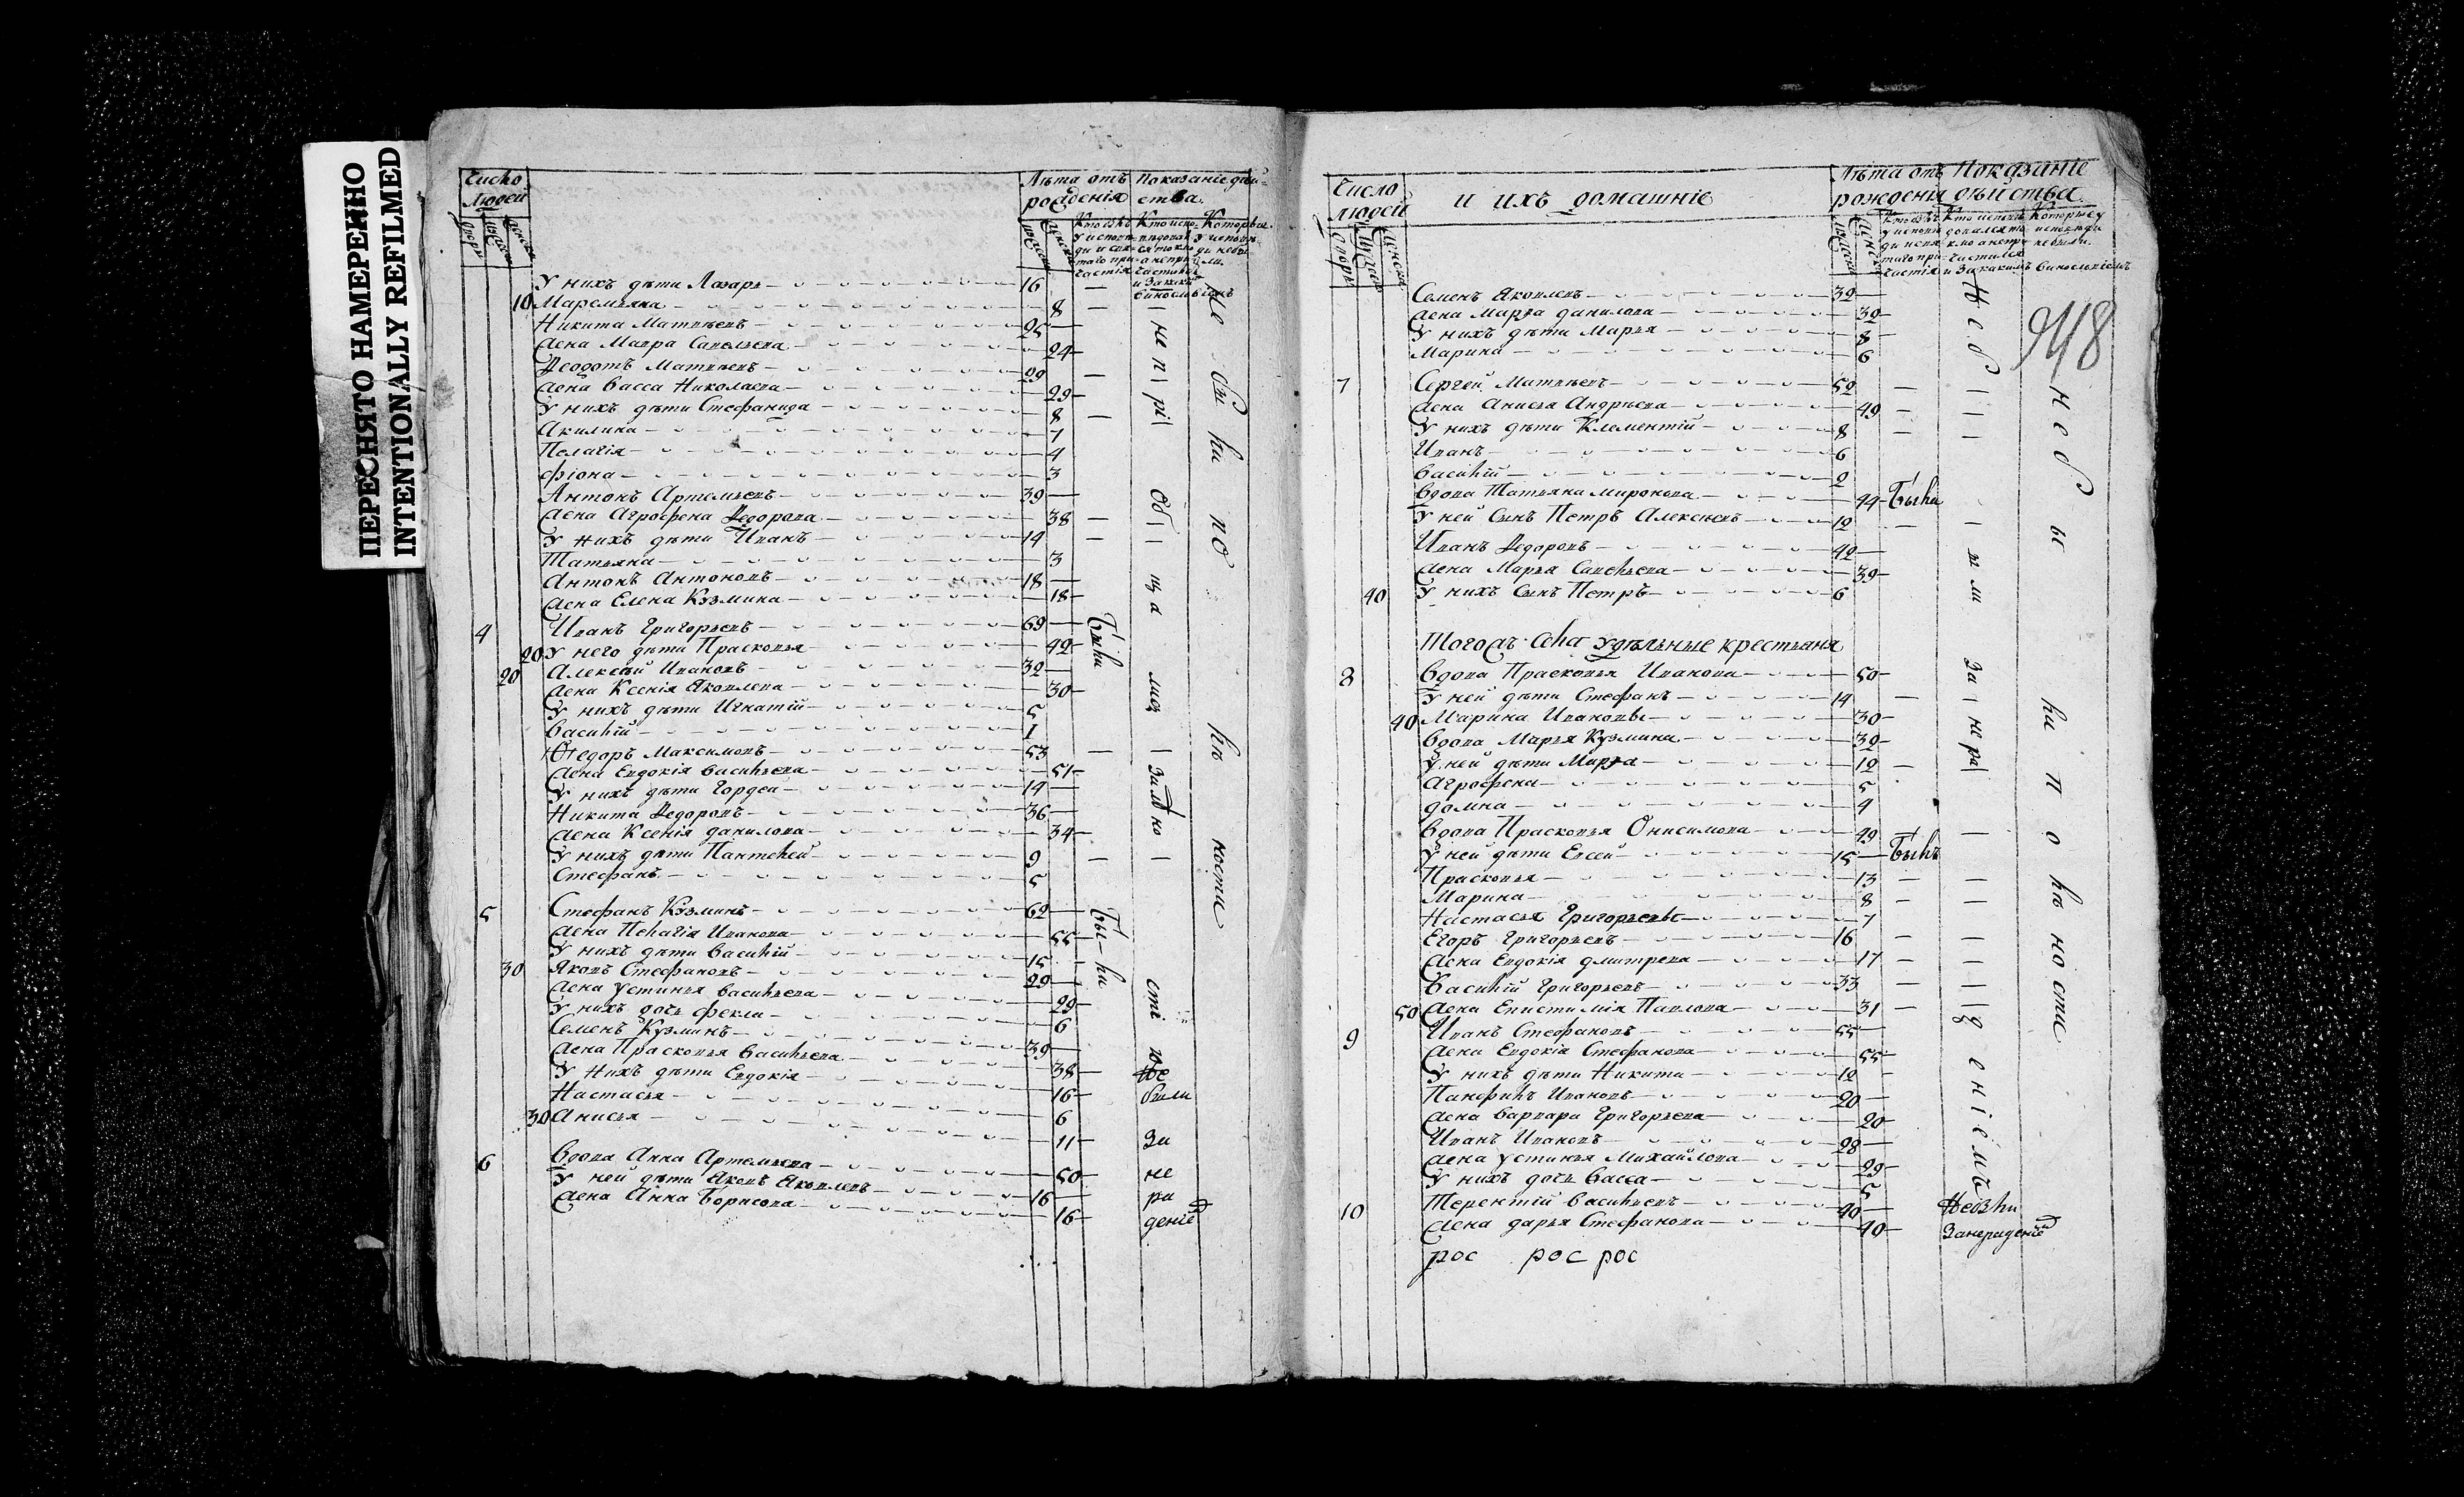 ПЕРЕСНЯТО НАМЕРЕННО
INTENTIONALLY REFILMED
Число людей
Лѣта отъ рожденія
Показаніе дѣйства
У нихъ дѣти Лазарь 16
10 Маремьяна 8
Никита Матвѣевъ 25
Жена Мавра Савельева 24
Ѳеодотъ Матвѣевъ 29
Жена Васса Николаева 29
У нихъ дѣти Стефанида 8
Акилина 7
Пелагія 4
Фіона 3
Антонъ Артемьевъ 39
Жена Агрофена Ѳедорова 38
У нихъ дѣти Иванъ 14
Татьяна 3
Антонъ Антоновъ 18
Жена Елена Кузмина 18
4 Иванъ Григорьевъ 69 Были
20 У него дѣти Прасковья 42
20 Алексѣй Ивановъ 32
Жена Ксенія Яковлева 30
У нихъ дѣти Игнатій 5
Василій 1
Ѳедоръ Максимовъ 53
Жена Евдокія Васильева 51
У нихъ дѣти Гордеи 14
Никита Ѳедоровъ 36
Жена Ксенія Данилова 34
У нихъ дѣти Пантелей 9
Стефанъ 5
5 Стефанъ Кузминъ 62 Были
Жена Пелагія Иванова 55
У нихъ дѣти Василій 15
30 Яковъ Стефановъ 29
Жена Устинья Васильева 29
У нихъ дочь Фекла 6
Семенъ Кузминъ 39
Жена Прасковья Васильева 38
У нихъ дѣти Евдокія 16
Настасья 6
30 Анисья 11
6 Вдова Анна Артемьева 50
У ней дѣти Яковъ Яковлевъ 16
Жена Анна Борисова 16
Не были
За не ра деніе
Число людей
и ихъ домашніе
Лѣта отъ рожденія
Показаніе дѣйства
948
Семенъ Яковлевъ 32
Жена Марѳа Данилова 30
У нихъ дѣти Марья 8
Марина 6
7 Сергей Матвѣевъ 52
Жена Анисья Андрѣева 49
У нихъ дѣти Клементій 8
Иванъ 6
Василій 2
Вдова Татьяна Миронова 44 Были
У ней сынъ Петръ Алексѣевъ 12
Иванъ Ѳедоровъ 42
Жена Марья Савельева 39
40 У нихъ сынъ Петръ 6
Тогожъ села удѣльные крестьяня
8 Вдова Прасковья Иванова 50
У ней дѣти Стефанъ 14
40 Марина Ивановы 30
Вдова Марья Кузмина 39
У ней дѣти Марѳа 12
Агрофена 5
Домна 4
Вдова Прасковья Онисимова 49
У ней дѣти Евсей 15 Былъ
Прасковья 13
Марина 8
Настасья Григорьевы 7
Егоръ Григорьевъ 16
Жена Евдокія Дмитрева 17
Василій Григорьевъ 33
50 Жена Епистимія Павлова 31
9 Иванъ Стефановъ 55
Жена Евдокія Стефанова 55
У нихъ дѣти Никита 12
Панфилъ Ивановъ 20
Жена Варвара Григорьева 20
Иванъ Ивановъ 28
Жена Устинья Михайлова 29
У нихъ дочь Васса 5
10 Терентій Васильевъ 40 Небыли
Жена Дарья Стефанова 40 Занераденіе
рос рос рос